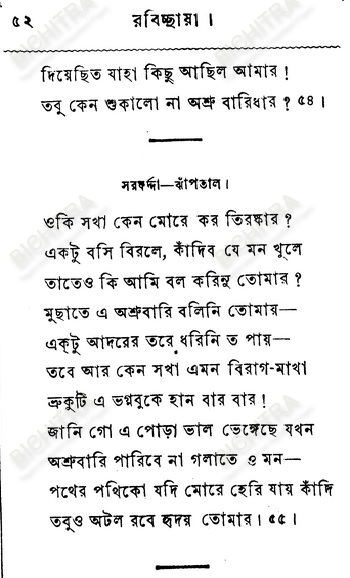 ৫২ রবিচ্ছায়া।
দিয়েছিত যাহা কিছু আছিল আমার!
তবু কেন শুকালো না অশ্রু বারিধার? ৫৪।
সরফর্দ্দা—ঝাঁপতাল।
ওকি সখা কেন মোরে কর তিরষ্কার?
একটু বসি বিরলে, কাঁদিব যে মন খূলে
তাতেও কি আমি বল করিনু তোমার?
মুছাতে এ অশ্রুবারি বলিনি তোমায়—
একটু আদরের তরে ধরিনি ত পায়—
তবে আর কেন সখা এমন বিরাগ-মাখা
ভ্রুকুটি এ ভগ্নবুকে হান বার বার!
জানি গো এ পোড়া ভাল ভেঙ্গেছে যখন
অশ্রুবারি পারিবে না গলাতে ও মন—
পথের পথিকো যদি মোরে হেরি যায় কাঁদি
তবুও অটল রবে হৃদয় তোমার। ৫৫।
BICHITRA